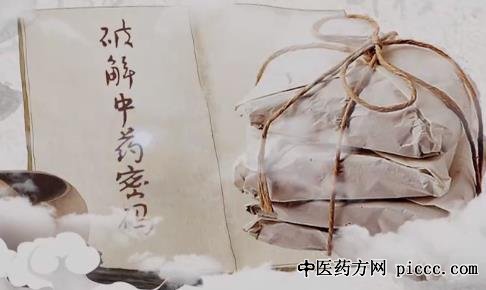 破解中药密码
中医药方网 piccc.com